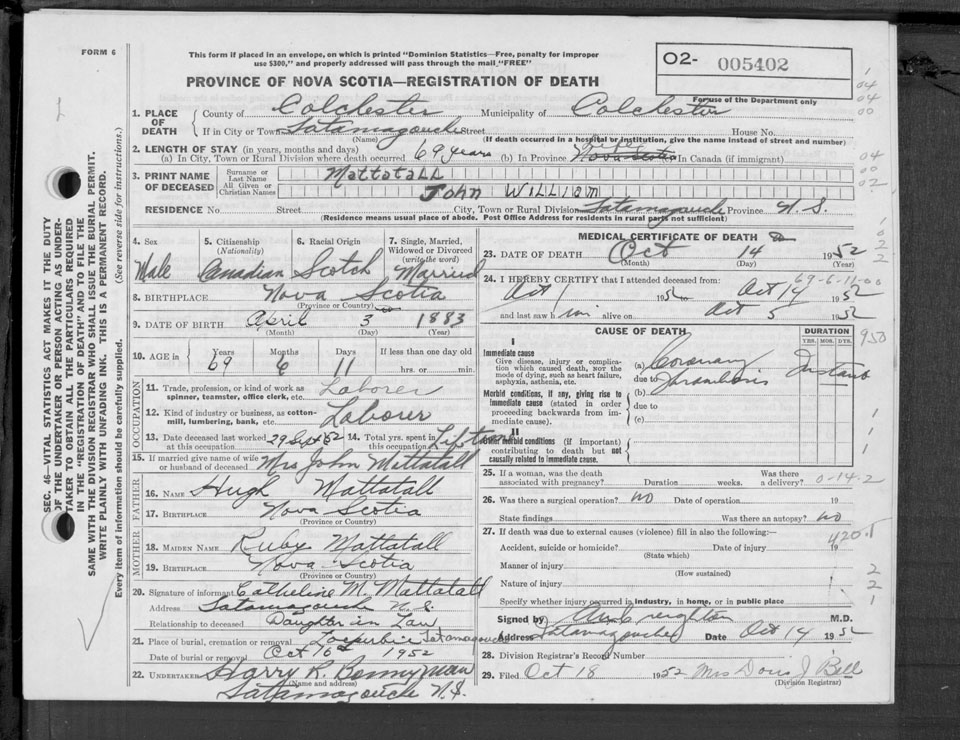 FORM 6
This form if placed in an envelope, on which is printed "Dominion Statistics—Free, penalty for improper
use $300," and properly addressed will pass through the mail "FREE"
O2- 005402
For use of the Department only
PROVINCE OF NOVA SCOTIA—REGISTRATION OF DEATH
1. PLACE OF DEATH County of Colchester Municipality of Colchester
If in City or Town Tatamagouche Street House No.
(Name) (If death occurred in a hospital or institution, give the name instead of street and number)
2. LENGTH OF STAY (in years, months and days)
(a) In City, Town or Rural Division where death occurred 69 years (b) In Province Nova Scotia In Canada (if immigrant)
3. PRINT NAME OF DECEASED Surname or Last Name Mattatall
All Given or Christian Names John William
RESIDENCE No. Street City, Town or Rural Division Tatamagouche Province N.S.
(Residence means usual place of abode. Post Office Address for residents in rural parts not sufficient)
4. Sex 5. Citizenship (Nationality) 6. Racial Origin 7. Single, Married, Widowed or Divorced (write the word)
Male Canadian Scotch Married
8. BIRTHPLACE Nova Scotia
(Province or Country)
9. DATE OF BIRTH April 3 1883
(Month) (Day) (Year)
10. AGE in Years Months Days If less than one day old
69 6 11 hrs. or min.
OCCUPATION
11. Trade, profession, or kind of work as spinner, teamster, office clerk, etc. Laborer
12. Kind of industry or business, as cotton-mill, lumbering, bank, etc. Laborer
13. Date deceased last worked at this occupation 29 Sept 52 14. Total yrs. spent in this occupation Lifetime
15. If married give name of wife or husband of deceased Mrs John Mattatall
FATHER
16. NAME Hugh Mattatall
17. BIRTHPLACE Nova Scotia
(Province or Country)
MOTHER
18. MAIDEN NAME Ruby Mattatall
19. BIRTHPLACE Nova Scotia
(Province or Country)
20. Signature of informant Catheline M. Mattatall
Address Tatamagouch N.S.
Relationship to deceased Daughter in Law
21. Place of burial, cremation or removal Tatamagouche
Date of burial or removal Oct 16th 1952
22. UNDERTAKER Harry R. Bonnyman
(Name and address)
Tatamagouch N.S.
MEDICAL CERTIFICATE OF DEATH
23. DATE OF DEATH Oct 14 1952
(Month) (Day) (Year)
69-6-11-00
24. I HEREBY CERTIFY that I attended deceased from:
Oct 1 1952 to Oct 14 1952
and last saw him alive on Oct 5 1952
CAUSE OF DEATH DURATION
YRS. MOS. DYS.
950
I
Immediate cause
Give disease, injury or complication which caused death, NOT the mode of dying, such as heart failure, asphyxia, asthenia, etc.
(a) Coronary
due to Thrombosis Instant
Morbid conditions, if any, giving rise to immediate cause (stated in order proceeding backwards from immediate cause).
(b)
due to
(c)
II
Other morbid conditions (if important) contributing to death but not causally related to immediate cause.
25. If a woman, was the death associated with pregnancy? Duration weeks. Was there a delivery? 0-14-2
26. Was there a surgical operation? no Date of operation 19
State findings Was there an autopsy? no
27. If death was due to external causes (violence) fill in also the following:—
420.1
Accident, suicide or homicide? Date of injury 19
(State which)
Manner of injury
(How sustained)
Nature of injury
Specify whether injury occurred in industry, in home, or in public place
Signed by Creighton M.D.
Address Tatamagouche Date Oct 14 1952
28. Division Registrar's Record Number
29. Filed Oct 18 1952 Mrs Doris J Bell
(Division Registrar)
SEC. 46—VITAL STATISTICS ACT MAKES IT THE DUTY
OF THE UNDERTAKER OR PERSON ACTING AS UNDERTAKER TO OBTAIN ALL THE PARTICULARS REQUIRED
IN THE "REGISTRATION OF DEATH" AND TO FILE THE
SAME WITH THE DIVISION REGISTRAR WHO SHALL ISSUE THE BURIAL PERMIT.
WRITE PLAINLY WITH UNFADING INK. THIS IS A PERMANENT RECORD.
Every item of information should be carefully supplied. (See reverse side for instructions.)